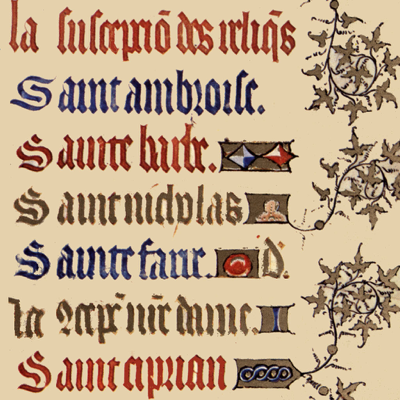 la susceptiō des reliq̄s
Saint ambroise.
Sainte barbe.
Saint nicholas
Sainte fare. D.
la 9cep̄ nr̄e dame.
Saint ciprian